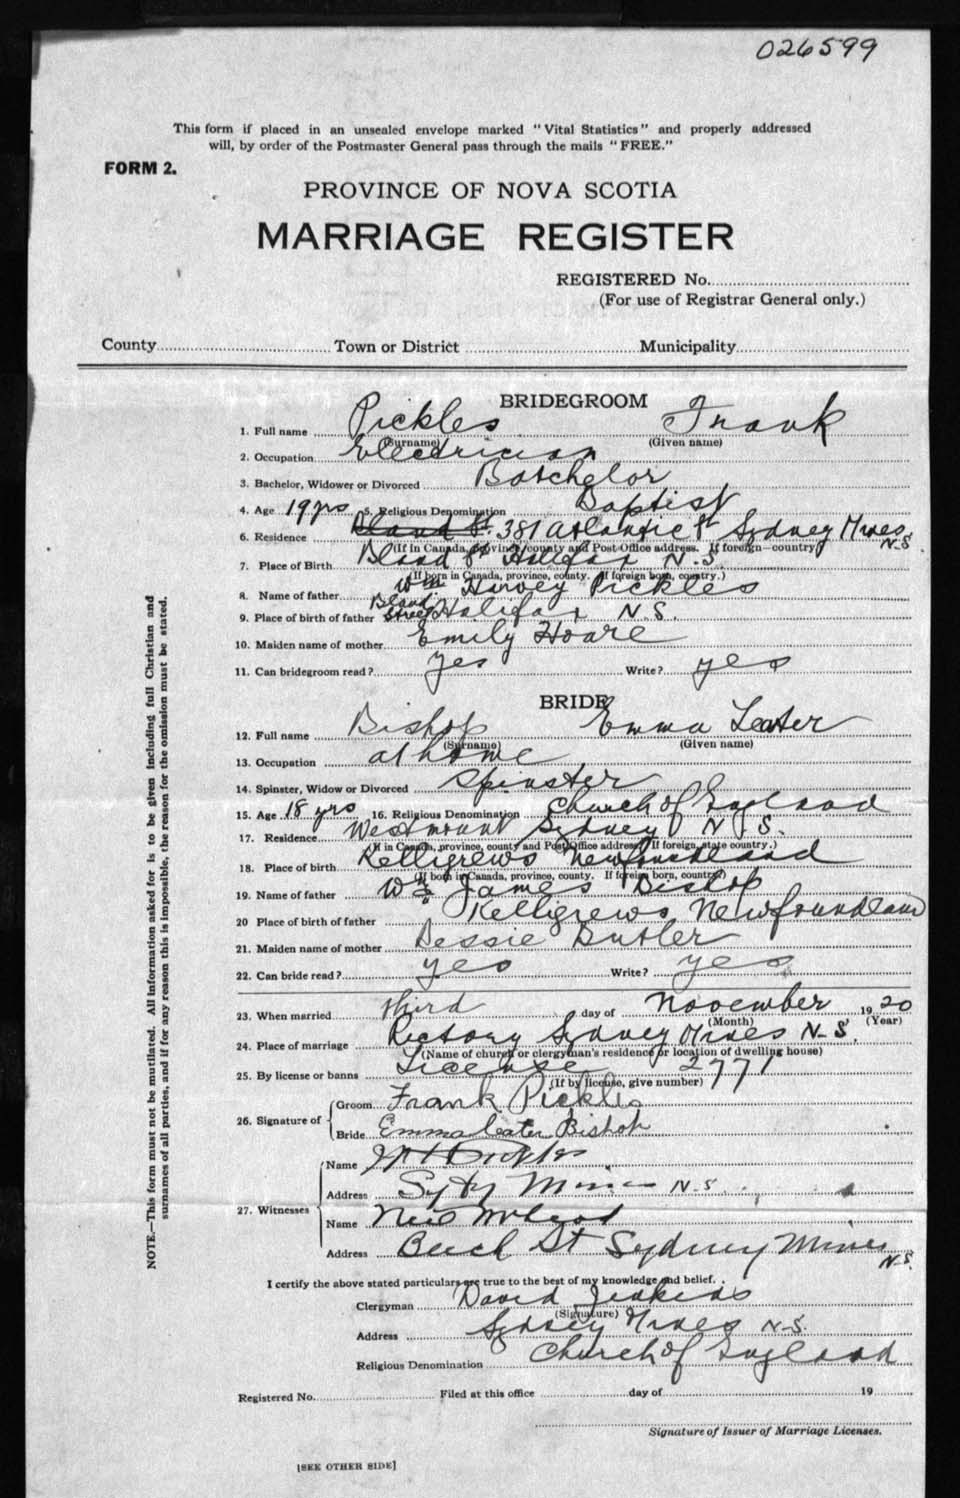 026599
This form if placed in an unsealed envelope marked "Vital Statistics" and properly addressed
will, by order of the Postmaster General pass through the mails "FREE."
FORM 2.
PROVINCE OF NOVA SCOTIA
MARRIAGE REGISTER
REGISTERED No.
(For use of Registrar General only.)
County Town or District Municipality
BRIDEGROOM
1. Full name Pickles Frank
(Surname) (Given name)
2. Occupation Electrician
3. Bachelor, Widower or Divorced Batchelor
4. Age 19 yrs 5. Religious Denomination Baptist
6. Residence Bland St. 381 Atlantic St Sydney Mines N.S.
(If in Canada, province, county and Post Office address. If foreign—country)
7. Place of Birth Bland St Halifax N.S.
(If born in Canada, province, county. If foreign born, country.)
8. Name of father Wm Harvey Pickles
9. Place of birth of father Bland Street Halifax N.S.
10. Maiden name of mother Emily Hoare
11. Can bridegroom read? yes Write? yes
BRIDE
12. Full name Bishop Emma Leater
(Surname) (Given name)
13. Occupation at home
14. Spinster, Widow or Divorced Spinster
15. Age 18 yrs 16. Religious Denomination Church of England
17. Residence Westmount Sydney N.S.
(If in Canada, province, county and Post Office address. If foreign, state country.)
18. Place of birth Kelligrews Newfoundland
(If born in Canada, province, county. If foreign born, country)
19. Name of father Wm James Bishop
20 Place of birth of father Kelligrews Newfoundland
21. Maiden name of mother Bessie Butler
22. Can bride read? yes Write? yes
23. When married third day of November 1920
(Month) (Year)
24. Place of marriage Rectory Sydney Mines N.S.
(Name of church or clergyman's residence or location of dwelling house)
25. By license or banns License 2771
(If by license, give number)
26. Signature of
Groom Frank Pickles
Bride Emma Leater Bishop
27. Witnesses
Name
Address Syd Mines N.S.
Name
Address Beech St Sydney Mines N.S.
I certify the above stated particulars are true to the best of my knowledge and belief.
Clergyman David Jenkins
(Signature)
Address Sydney Mines N.S.
Religious Denomination Church of England
Registered No. Filed at this office day of 19
Signature of Issuer of Marriage Licenses.
[SEE OTHER SIDE]
NOTE.—This form must not be mutilated. All information asked for is to be given including full Christian and
surnames of all parties, and if for any reason this is impossible, the reason for the omission must be stated.